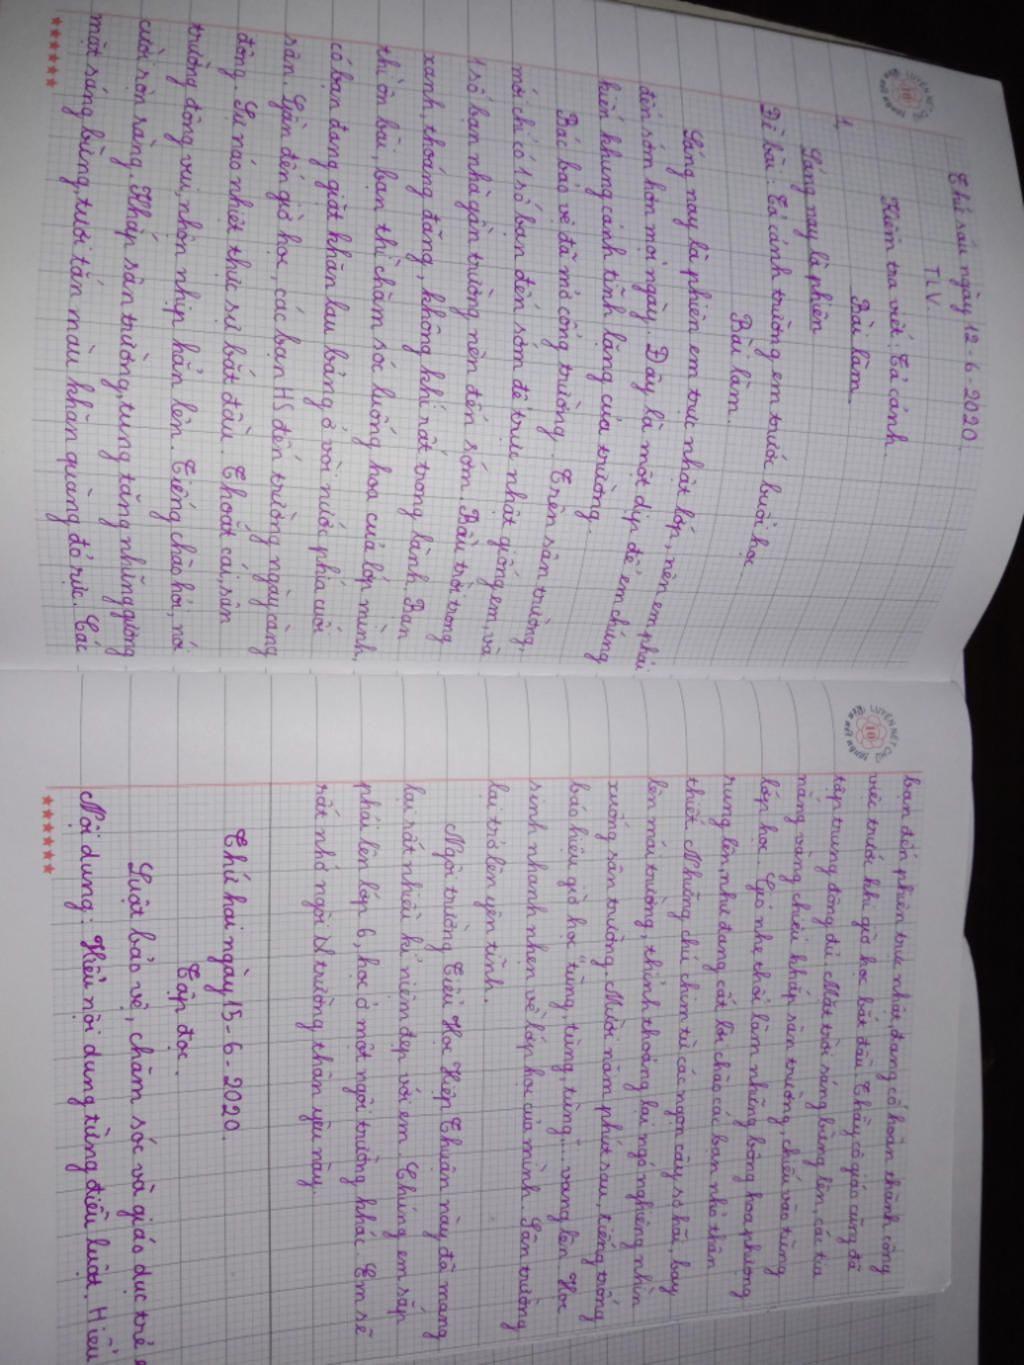 Thứ sáu ngày 12-6-2020.
TLV.
Kiểm tra viết: Tả cảnh.
Bài làm.
1,
Sáng nay là phiên
Đề bài: Tả cảnh trường em trước buổi học
Bài làm.
Sáng nay là phiên em trực nhật lớp, nên em phải
đến sớm hơn mọi ngày. Đây là một dịp để em chứng
kiến khung cảnh tĩnh lặng của trường.
Bác bảo vệ đã mở cổng trường. Trên sân trường,
mới chỉ có 1 số bạn đến sớm để trực nhật giống em, và
1 số bạn nhà gần trường nên đến sớm. Bầu trời trong
xanh, thoáng đãng, không khí rất trong lành. Bạn
thì ôn bài, bạn thì chăm sóc luống hoa của lớp mình,
có bạn đang giặt khăn lau bảng ở vòi nước phía cuối
sân. Gần đến giờ học, các bạn HS đến trường ngày càng
đông. Sự náo nhiệt thực sự bắt đầu. Thoắt cái, sân
trường đông vui, nhộn nhịp hẳn lên. Tiếng chào hỏi, nói
cười rộn ràng. Khắp sân trường, tung tăng những gương
mặt sáng bừng, tươi tắn màu khăn quàng đỏ rực. Các
LUYỆN NÉT CHỮ
10
bạn đến phiên trực nhật, đang cố hoàn thành công
việc trước khi giờ học bắt đầu. Thầy cô giáo cũng đã
tập trung đông đủ. Mặt trời sáng bừng lên, các tia
nắng vàng chiếu khắp sân trường, chiếu vào từng
lớp học. Gió nhẹ thổi làm những bông hoa phượng
rung lên, như đang cất lời chào các bạn nhỏ thân
thiết. Những chú chim từ các ngọn cây sợ hãi, bay
lên mái trường, thỉnh thoảng lại ngó nghiêng nhìn
xuống sân trường. Mười năm phút sau, tiếng trống
báo hiệu giờ học "tùng, tùng, tùng... vang lên. Học
sinh nhanh nhẹn về lớp học của mình. Sân trường
lại trở lên yên tĩnh.
Ngôi trường Tiểu Học Hiện Thuận này đã mang
lại rất nhiều kỉ niệm đẹp với em. Chúng em sắp
phải lên lớp 6, học ở một ngôi trường khác. Em sẽ
rất nhớ ngôi trường thân yêu này.
Thứ hai ngày 15-6-2020.
Tập đọc.
Luật bảo vệ, chăm sóc và giáo dục trẻ
Nội dung: Hiểu nội dung từng điều luật. Hiểu
LUYỆN NÉT CHỮ
10